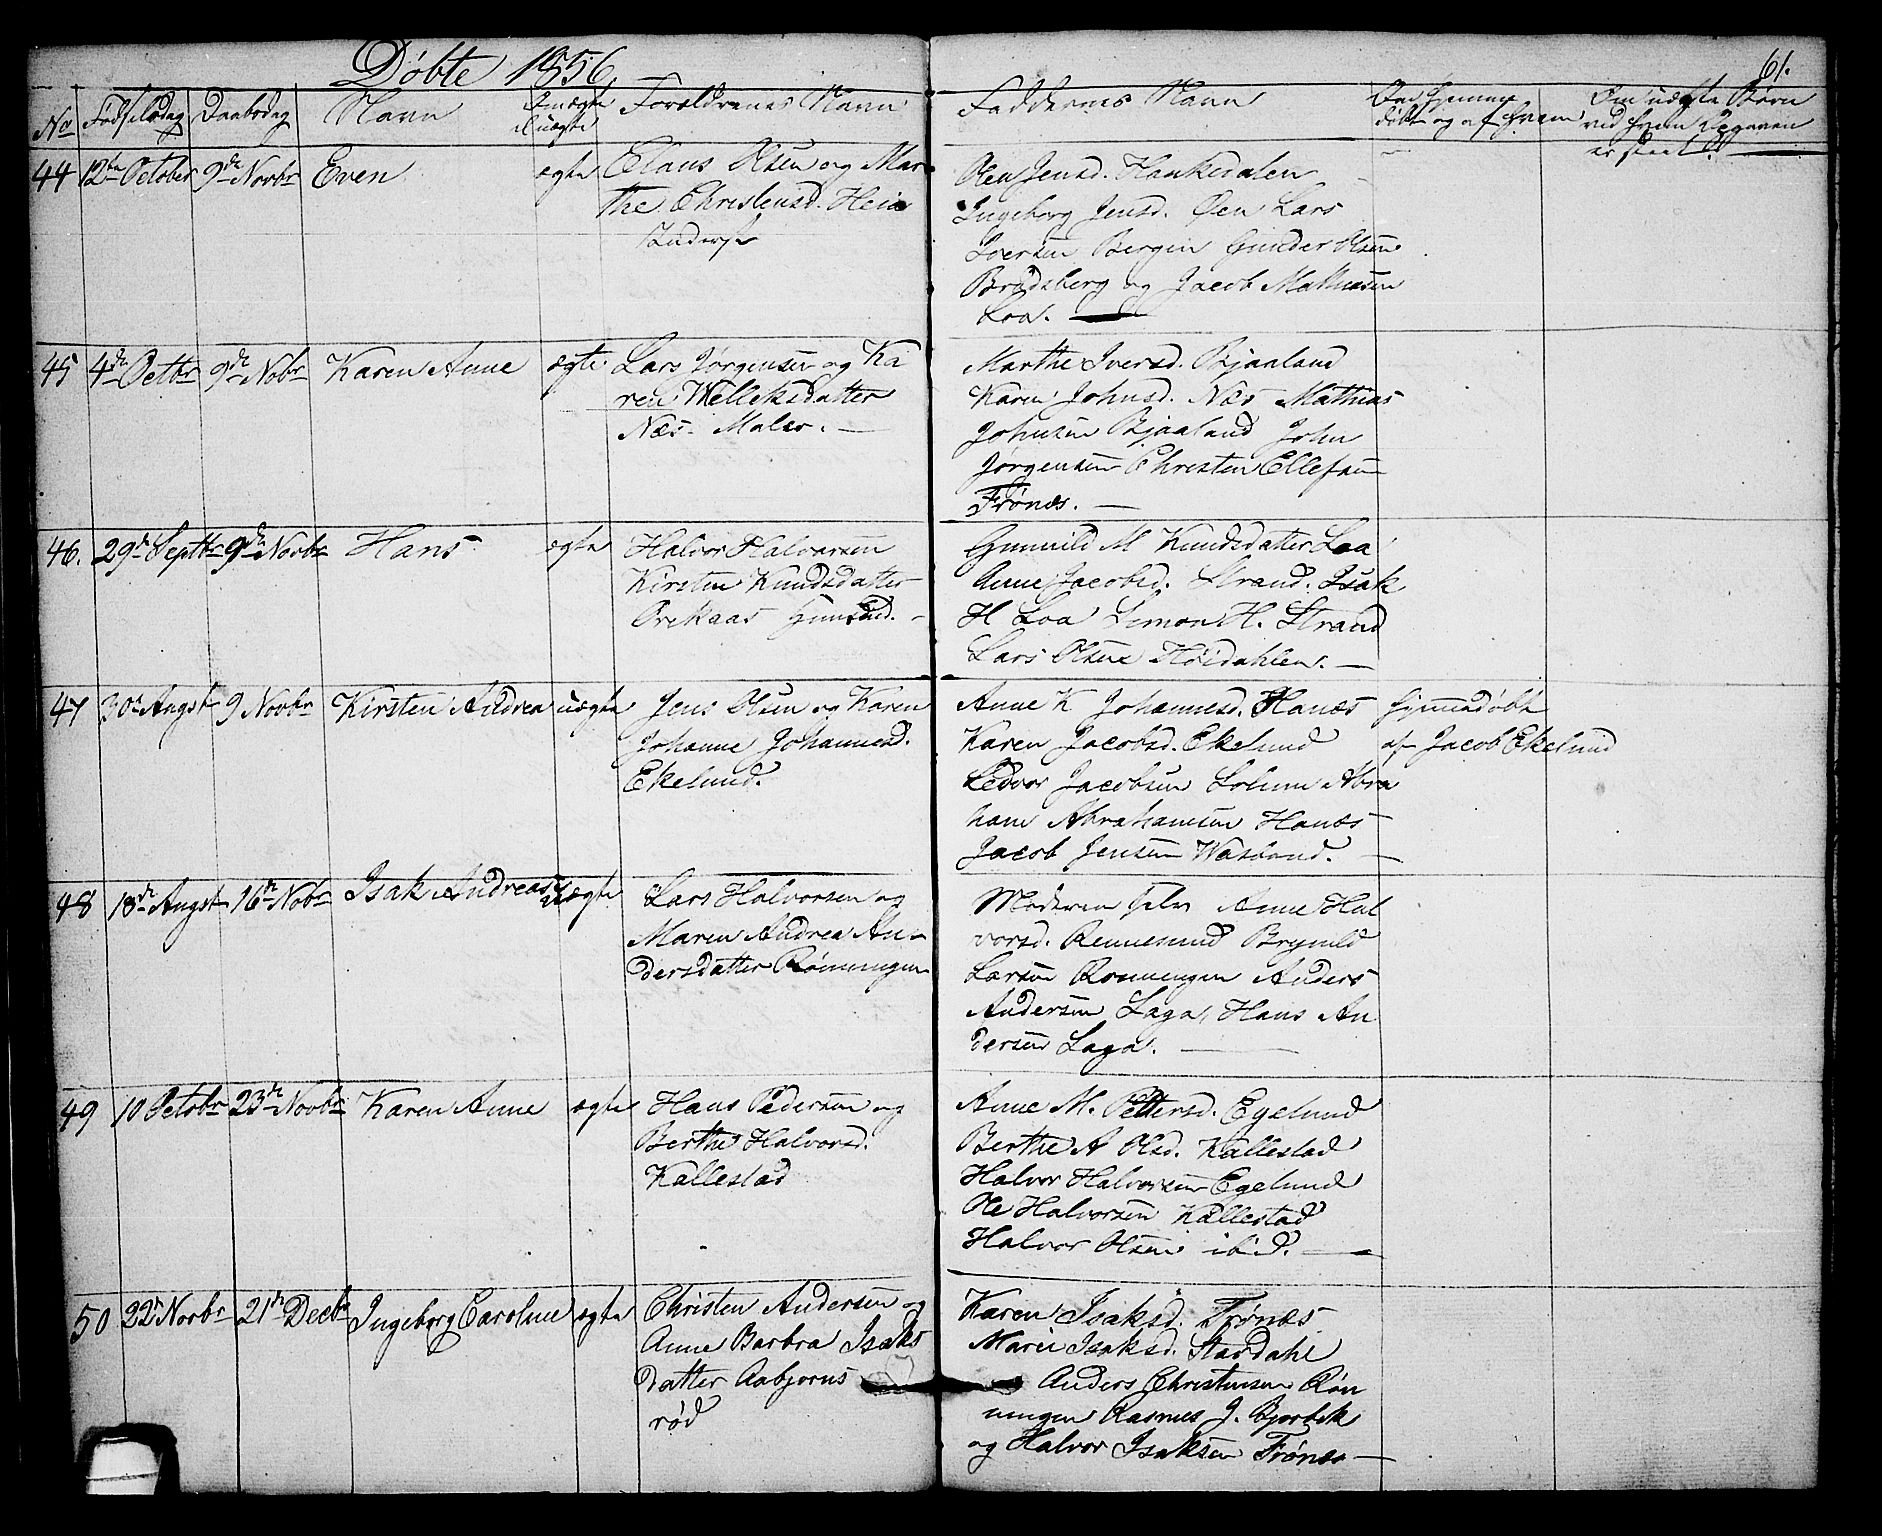 Døbte 1856.
61.
No Fødselsdag Daabsdag Navn Om ægte Uægte Forældrenes Navn Faddernes Navn Om hjemmedøbt og af hvem Om uægte Børn ved hvem Pigeaaen er
44 12te October 9de Novbr Even ægte Claus Olsen og Mar
the Christensd. Heia
Olea Jensd. Haukedalen
Ingeborg Jensd. Øen Lars
Iversen Bergen Gunder Olsen
Bradsberg og Jacob Mathiesen
Loa.
45 4de Octbr 9de Nobr Karen Anne ægte Lars Jørgensen og Ka
ren Welleksdatter
Næs Maler.
Marthe Iversd. Bjaaland
Karen Johnsd. Næs Mathias
Johnsen Bjaaland John
Jørgensen Christen Ellefsen
Frønæs.
46. 29de Septbr 9de Novbr Hans ægte Halvor Halvorsen
Kirsten Knudsdatter
Orekaas
Gunnild M Knudsdatter Loa
Anne Jacobsd. Strand. Isak
H Loa Simon H. Strand
Lars Olsen Høidahlen.
47 30te Augst 9 Novbr Kirsten Andrea uægte Jens Olsen og Karen
Johanne Johannesd.
Ekelund.
Anne K Johannesd. Hanæs
Karen Jacobsd. Ekelund
Ledvor Jacobsen Solum Abra
ham Abrahamsen Hanæs
Jacob Jensen Wasbond.
hjemmedøbt
af Jacob Ekelund
48 18de Augst 16de Nobr Isak Andreas uægte Lars Halvorsen og
Maren Andrea An
dersdatter Rønningen
Moderen selv Anne Hal
vorsd. Rennesund Brynild
Larsen Ronningen Anders
Andersen Laga, Hans An
dersen Laga.
49 10 Octobr 23de Novbr Karen Anne ægte Hans Pedersen og
Berthe Halvorsd.
Kallestad
Anne M. Pettersd. Egelund
Berthe A Olsd. Kallestad
Halvor Halvorsen Egelund
Ole Halvorsen Kallestad
Halvor Olsen ibid.
50 22de Novbr 21de Decbr Ingeborg Caroline ægte Christen Andersen og
Anne Barbra Isaks
datter Aabjorns
rød
Karen Isaksd. Frønæs
Maren Isaksd. Stavdahl
Anders Christensen Røn
ningen Rasmus J. Bjorbek
og Halvor Isaksen Frønæs